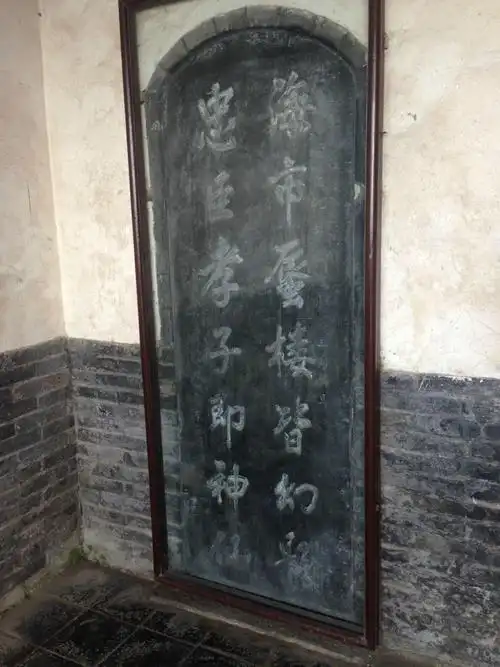 海市蜃樓皆幻影
忠臣孝子即神仙